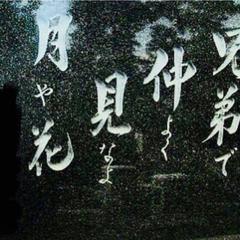 兄弟で
仲よく
見なよ
月や花